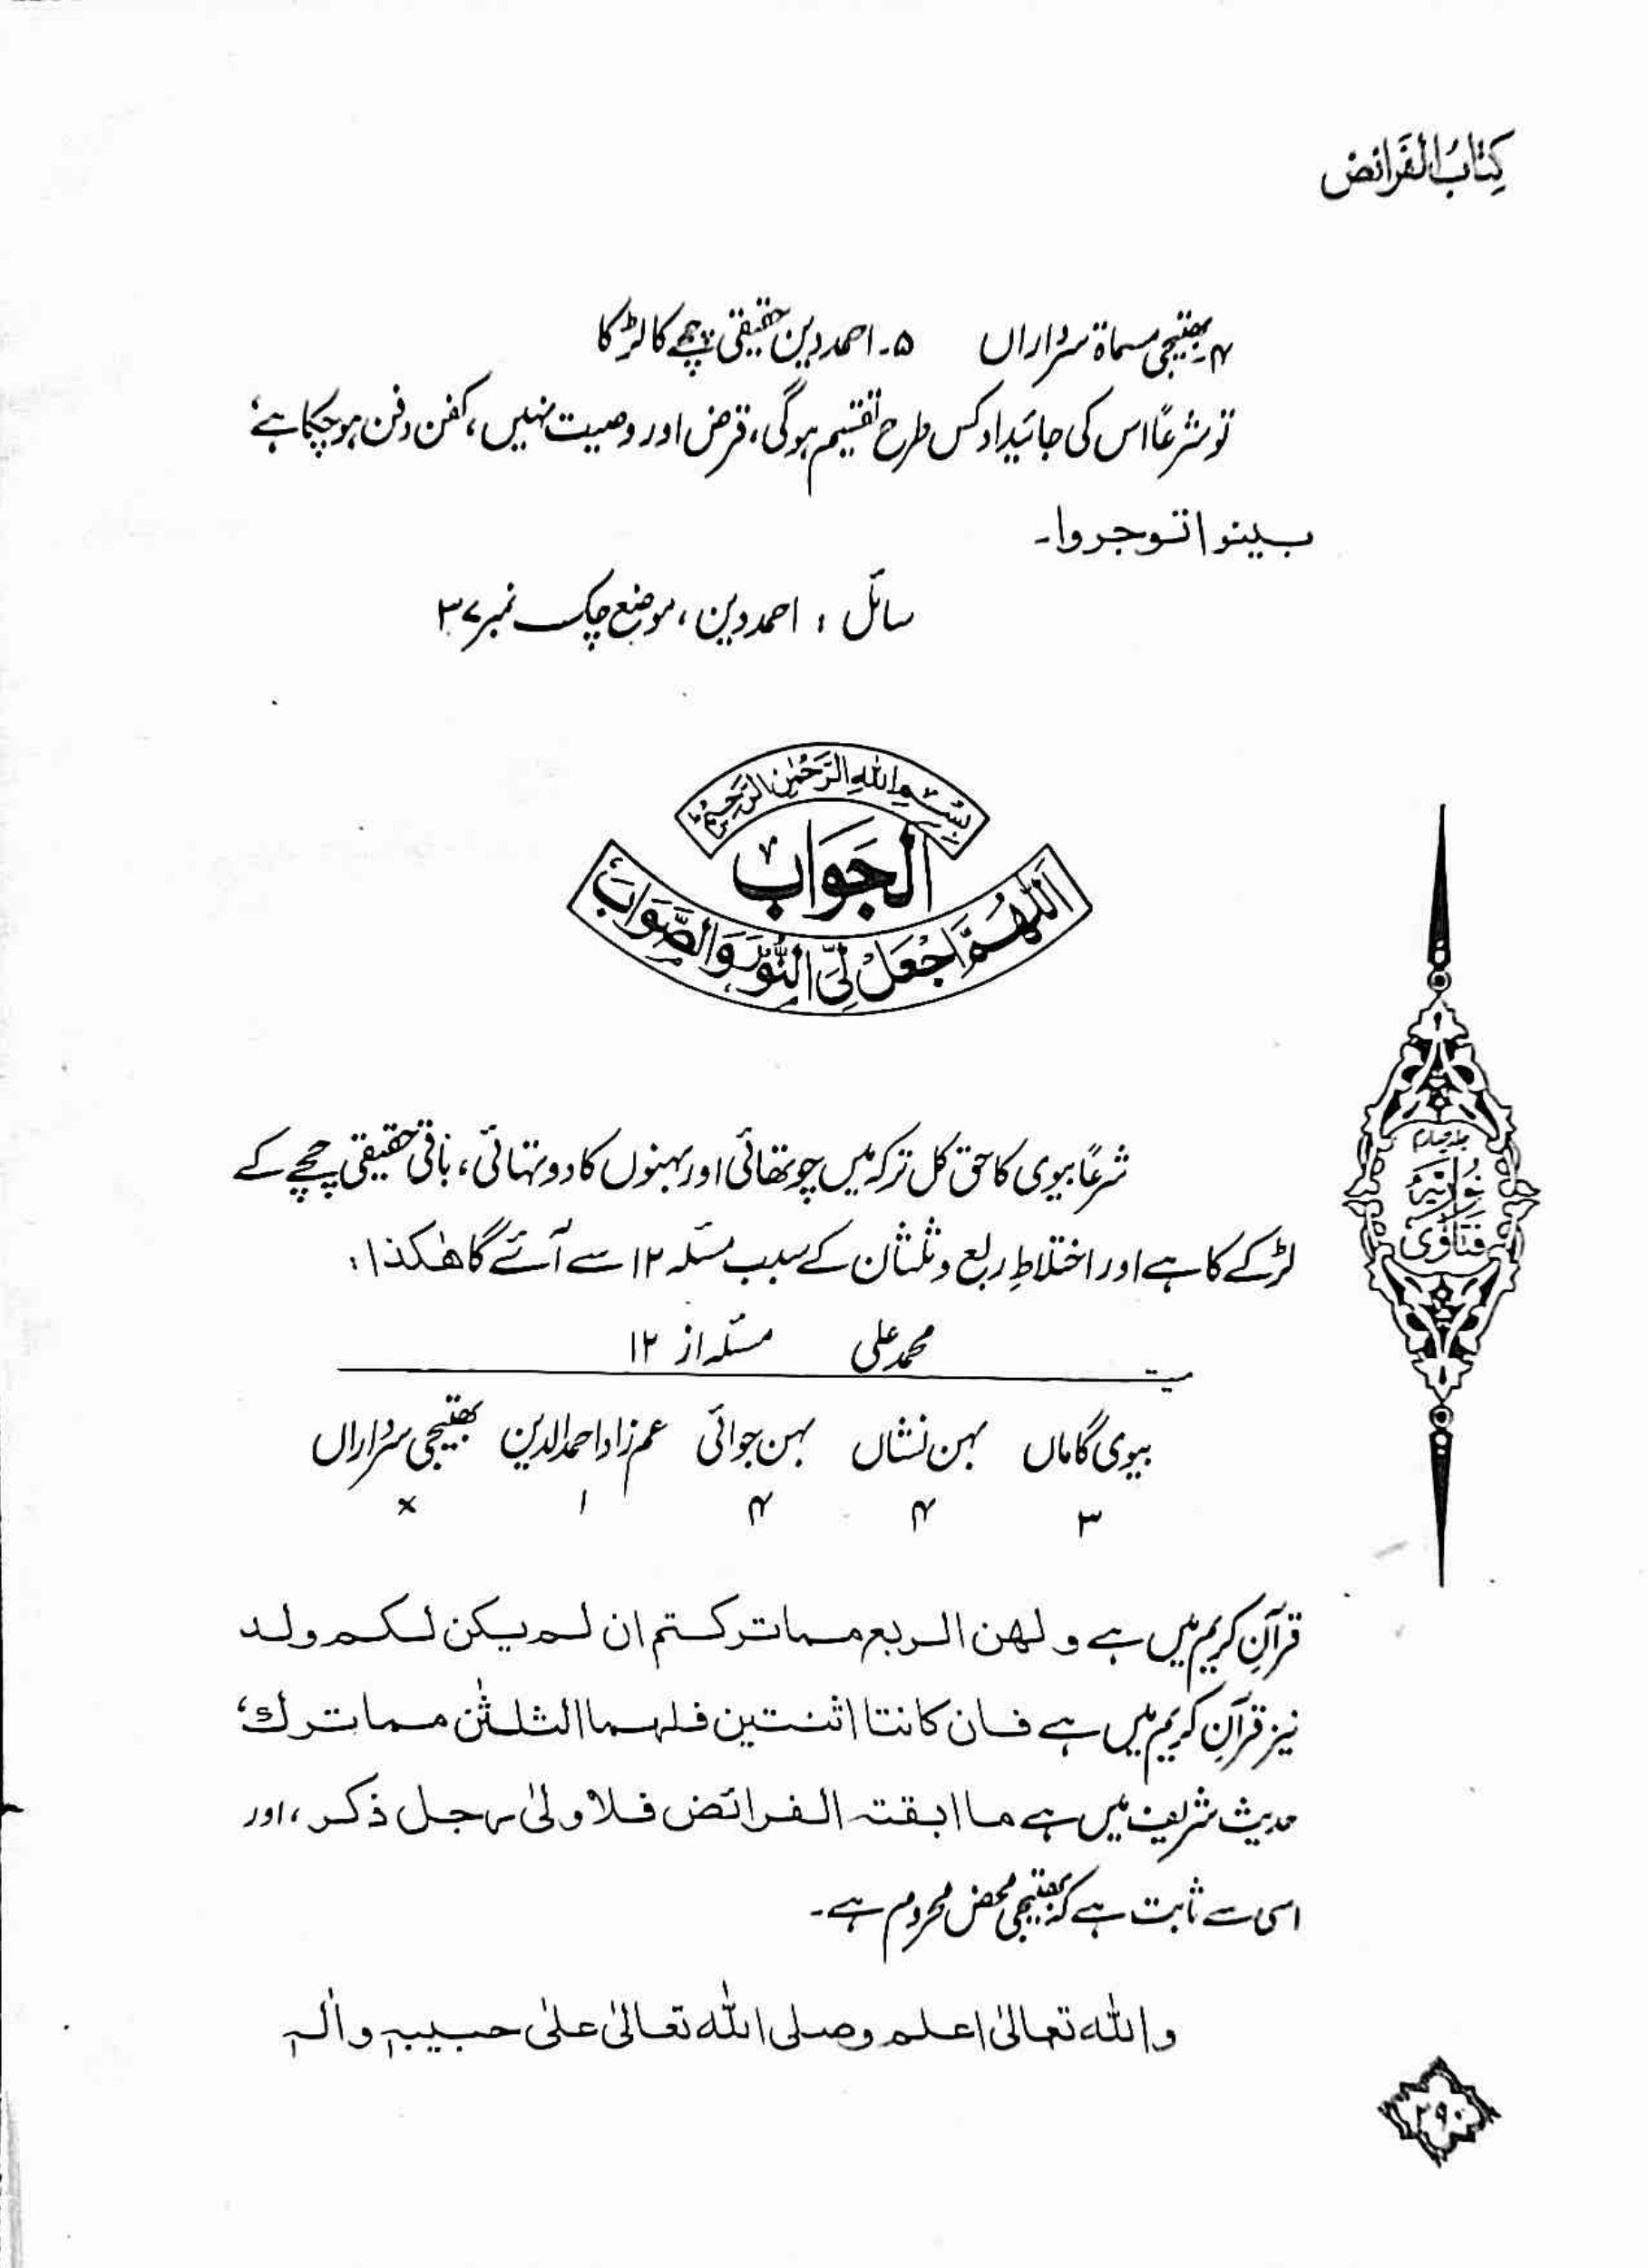 کِتَابُ الفَرَائض
۴۔ بھتیجی مسماۃ سرداراں ۵۔ احمد دین حقیقی چچے کا لڑکا
تو شرعاً اس کی جائیداد کس طرح تقسیم ہوگی، قرض اور وصیت نہیں، کفن دفن ہو چکا ہے،
بینوا توجروا۔
سائل : احمد دین، موضع چک نمبر ۳۷
بِسْمِ اللهِ الرَّحْمٰنِ الرَّحِيْمِ
الجَوَاب
اَللّٰهُمَّ اجْعَلْ لِّیَ النُّوْرَ وَالصَّوَابَ
شرعاً بیوی کا حق کل ترکہ میں چوتھائی اور بہنوں کا دو تہائی، باقی حقیقی چچے کے
لڑکے کا ہے اور اختلاطِ ربع و ثلثان کے سبب مسئلہ ۱۲ سے آئے گا ھٰکذا :
محمد علی مسئلہ از ۱۲
میت
بیوی گاماں بہن نشاں بہن جوائی عم زاد احمد الدین بھتیجی سرداراں
۳ ۴ ۴ ۱ ×
قرآنِ کریم میں ہے و لھن الربع مما ترکتم ان لم یکن لکم ولد
نیز قرآنِ کریم میں ہے فان کانتا اثنتین فلہما الثلثٰن مما ترك،
حدیث شریف میں ہے ما ابقتہ الفرائض فلاولیٰ رجل ذکر، اور
اسی سے ثابت ہے کہ بھتیجی محض محروم ہے۔
واللّٰه تعالیٰ اعلم وصلی اللّٰه تعالیٰ علیٰ حبیبہٖ واٰلہٖ
جلد چہارم
نُوریّہ
فتَاوٰی
۲۹۰